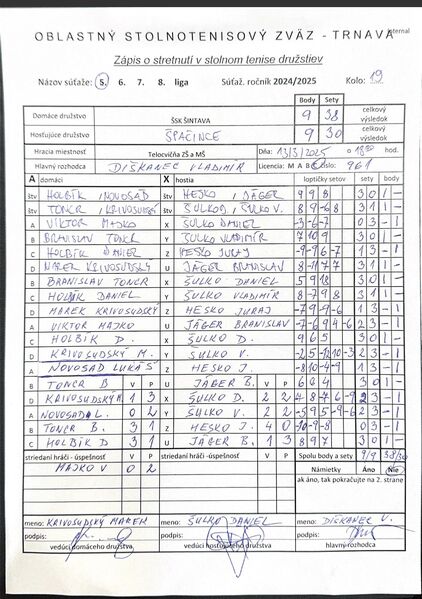 internal
OBLASTNÝ STOLNOTENISOVÝ ZVÄZ - TRNAVA
Zápis o stretnutí v stolnom tenise družstiev
Názov súťaže: 5. 6. 7. 8. liga Súťaž. ročník 2024/2025 Kolo: 19
Body Sety
Domáce družstvo ŠSK ŠINTAVA 9 38 celkový výsledok
Hosťujúce družstvo ŠPAČINCE 9 30 celkový výsledok
Hracia miestnosť Telocvičňa ZŠ a MŠ Dňa: 13/3/2025 o hod.
Hlavný rozhodca DIŠKANEC VLADIMÍR Licencia: M A B C číslo: 961
A domáci X hostia loptičky sety sety body
štv HOLBÍK, NOVOSAD štv HESKO, JÄGER 9 9 8 3 0 1 -
štv TONCR, KRIVOSUDSKÝ štv ŠULKO D, ŠULKO V. 8 9 -6 8 3 1 1 -
A VIKTOR MAJKO X ŠULKO DANIEL -3 -6 -7 0 3 - 1
B BRANISLAV TONCR Y ŠULKO VLADIMÍR 7 10 9 3 0 1 -
C HOLBÍK DANIEL Z HESKO JURAJ -9 -9 6 -7 1 3 - 1
D MAREK KRIVOSUDSKÝ U JÄGER BRANISLAV 3 1 1 -
B BRANISLAV TONCR X ŠULKO DANIEL 5 9 18 3 0 1 -
C HOLBÍK DANIEL Y ŠULKO VLADIMÍR 8 -7 9 8 3 1 1 -
D MAREK KRIVOSUDSKÝ Z HESKO JURAJ -7 9 -9 -6 1 3 - 1
A VIKTOR MAJKO U JÄGER BRANISLAV -7 -6 9 4 -6 2 3 - 1
C HOLBÍK D. X ŠULKO D. 9 6 5 3 0 1 -
D KRIVOSUDSKÝ M. Y ŠULKO V. -2 5 -12 10 -3 2 3 - 1
A NOVOSAD LUKÁŠ Z HESKO J. -8 10 -4 -9 1 3 - 1
B TONCR B U JÄGER B. 6 6 4 3 0 1 -
D KRIVOSUDSKÝ M. 1 3 X ŠULKO D. 2 2 2 3 - 1
A NOVOSAD L. 0 2 Y ŠULKO V. 2 2 -5 9 5 -9 -6 2 3 - 1
B TONCR B. 3 1 Z HESKO J. 4 0 -10 -9 -8 0 3 - 1
C HOLBÍK D 3 1 U JÄGER B. 1 3 8 9 7 3 0 1 -
striedaní hráči - úspešnosť V P striedaní hráči - úspešnosť V P Spolu body a sety 9/9 38/30
MAJKO V 0 2 Námietky Áno Nie
ak áno, tak pokračujte na 2. strane
meno: KRIVOSUDSKÝ MAREK meno: ŠULKO DANIEL meno: DIŠKANEC V.
podpis: podpis: podpis:
vedúci domáceho družstva vedúci hosťujúceho družstva hlavný rozhodca